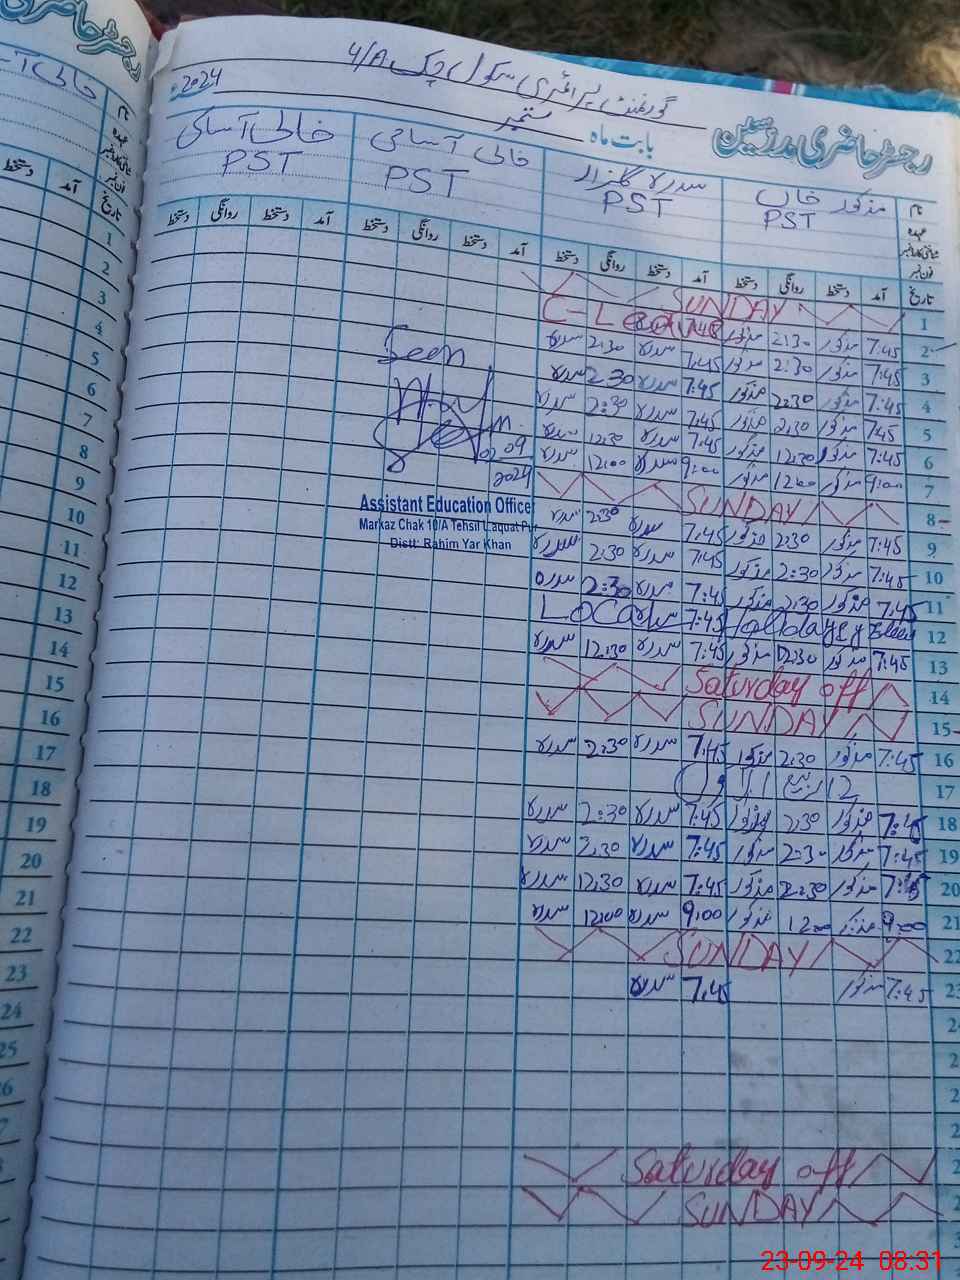 گورنمنٹ پرائمری سکول چک 4/A
رجسٹر حاضری مدرسین بابت ماہ ستمبر 2024ء
نام مذکور خاں سدرہ گلزار خالی آسامی خالی آسامی
عہدہ PST PST PST PST
شناختی کارڈ نمبر
فون نمبر
تاریخ آمد دستخط روانگی دستخط آمد دستخط روانگی دستخط آمد دستخط روانگی دستخط آمد دستخط روانگی دستخط
1 SUNDAY
2 7:45 مذکور 2:30 مذکور C-Leave
3 7:45 مذکور 2:30 مذکور 7:45 سدرہ 2:30 سدرہ
4 7:45 مذکور 2:30 مذکور 7:45 سدرہ 2:30 سدرہ
5 7:45 مذکور 2:30 مذکور 7:45 سدرہ 2:30 سدرہ
6 7:45 مذکور 12:30 مذکور 7:45 سدرہ 12:30 سدرہ
7 9:00 مذکور 12:00 مذکور 9:00 سدرہ 12:00 سدرہ
8 SUNDAY
9 7:45 مذکور 2:30 مذکور 7:45 سدرہ 2:30 سدرہ
10 7:45 مذکور 2:30 مذکور 7:45 سدرہ 2:30 سدرہ
11 7:45 مذکور 2:30 مذکور 7:45 سدرہ 2:30 سدرہ
12 Local Holiday
13 7:45 مذکور 12:30 مذکور 7:45 سدرہ 12:30 سدرہ
14 Saturday off
15 SUNDAY
16 7:45 مذکور 2:30 مذکور 7:45 سدرہ 2:30 سدرہ
17 12 ربیع الاول
18 7:45 مذکور 2:30 مذکور 7:45 سدرہ 2:30 سدرہ
19 7:45 مذکور 2:30 مذکور 7:45 سدرہ 2:30 سدرہ
20 7:45 مذکور 2:30 مذکور 7:45 سدرہ 12:30 سدرہ
21 9:00 مذکور 12:00 مذکور 9:00 سدرہ 12:00 سدرہ
22 SUNDAY
23 7:45 مذکور 7:45 سدرہ
Saturday off
SUNDAY
Seen
02.09
2024
Assistant Education Officer
Markaz Chak 10/A Tehsil Liaquat Pur
Distt: Rahim Yar Khan
23-09-24 08:31